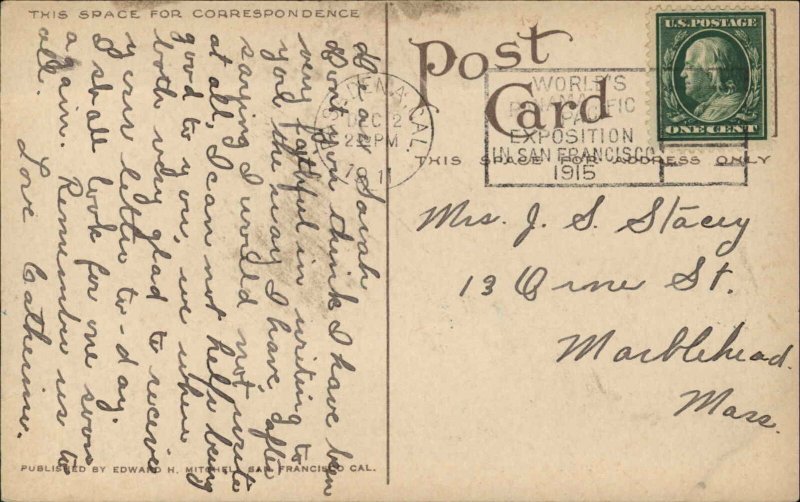 THIS SPACE FOR CORRESPONDENCE
Dear Sarah
Don't you think I have been
very faithful in writing to
you the way I have, after
saying I would not write
at all, I can not help being
good to you, we were
both very glad to receive
your letter to-day.
I shall look for one soon
again. Remember us to
all. Love Catherine.
PUBLISHED BY EDWARD H. MITCHELL SAN FRANCISCO CAL.
Post
Card
THIS SPACE FOR ADDRESS ONLY
PASADENA, CAL.
DEC 2
PM
WORLD'S
PANAMA PACIFIC
EXPOSITION
IN SAN FRANCISCO
1915
U.S. POSTAGE
ONE CENT
Mrs. J. S. Stacey
13 Orne St.
Marblehead.
Mass.